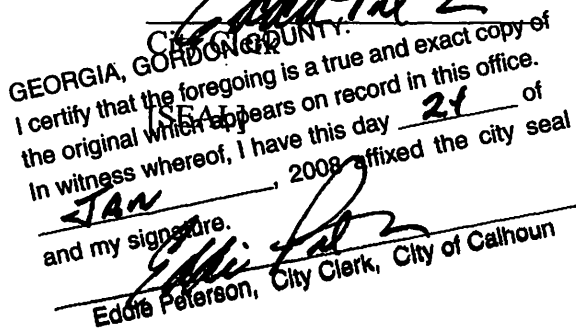 City Clerk
GEORGIA, GORDON COUNTY.
I certify that the foregoing is a true and exact copy of
[SEAL]
the original which appears on record in this office.
In witness whereof, I have this day 24 of
JAN, 2008 affixed the city seal
and my signature.
Eddie Peterson, City Clerk, City of Calhoun